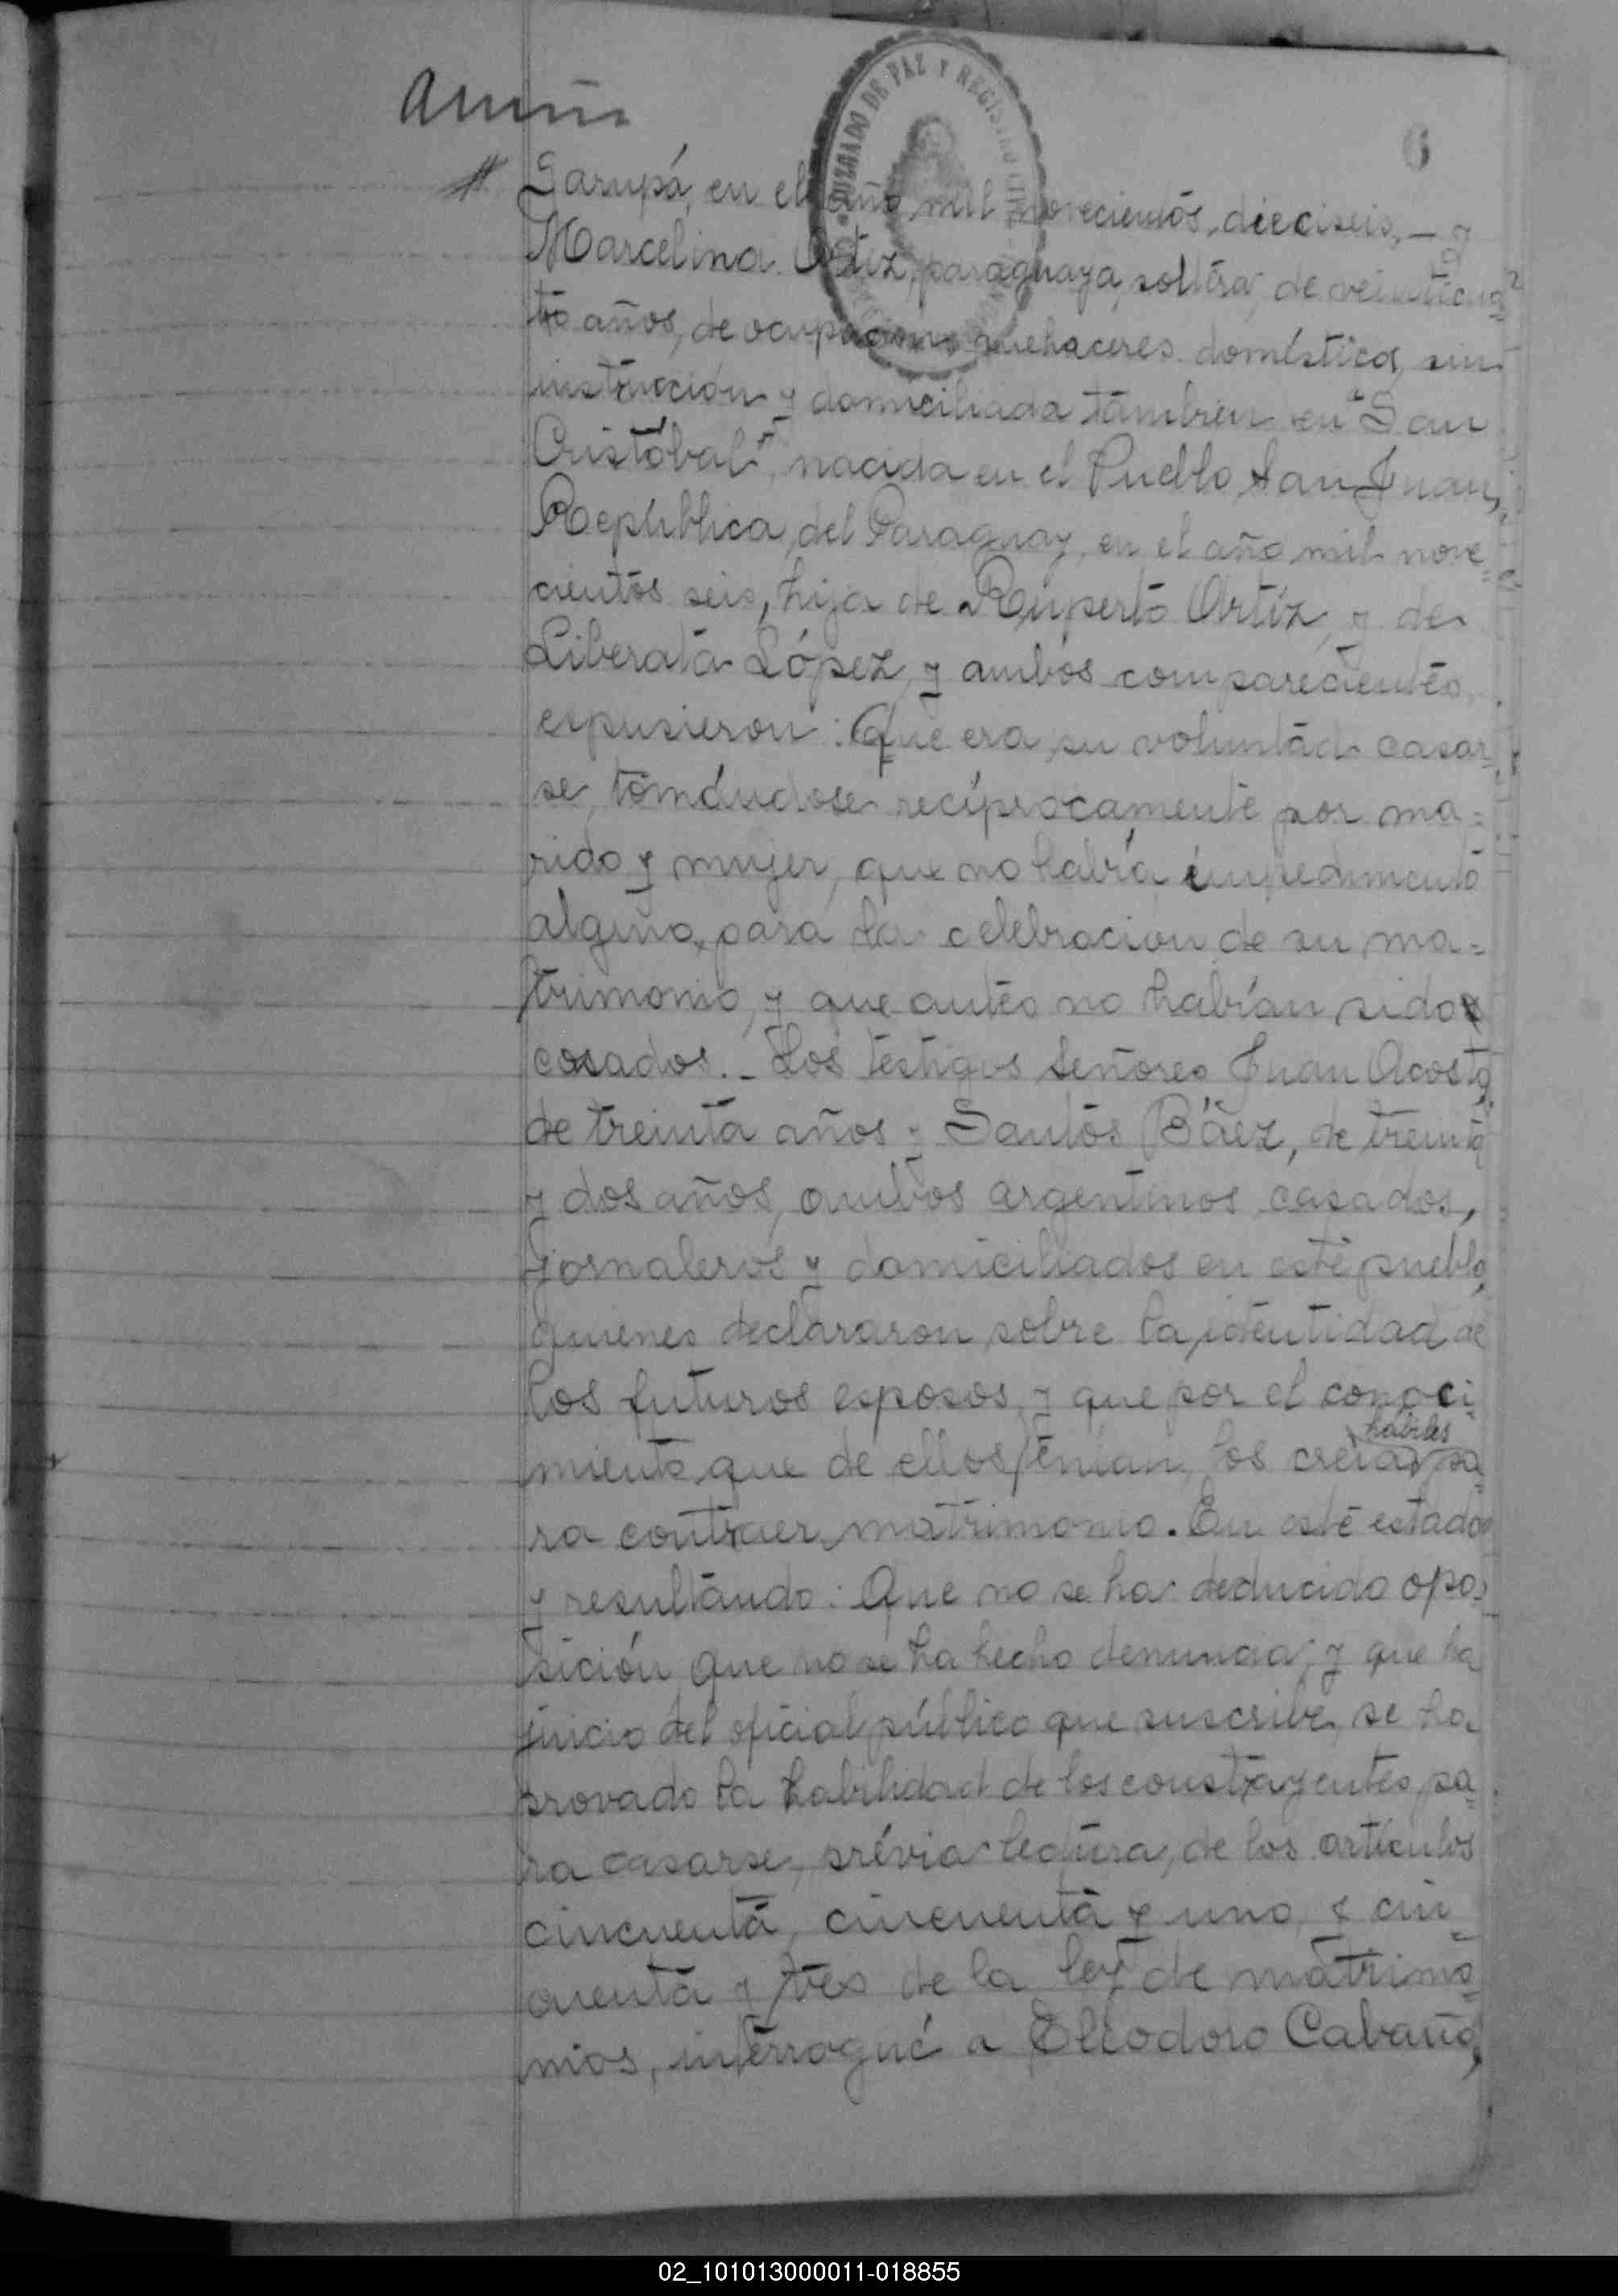 6
JUZGADO DE PAZ Y REGISTRO CIVIL
Garupá, en el año mil novecientos, dieciseis, — y
Marcelina Ortiz, paraguaya, soltera, de veinticua=
tro años, de ocupaciones quehaceres doméstica, sin
instrucción y domiciliada tambien en "San
Cristóbal", nacida en el Pueblo San Juan,
República del Paraguay, en el año mil nove=
cientos seis, hija de Ruperto Ortíz, y de
Liberata López, y ambos comparecientes
expusieron: Que era su voluntad casar=
se, tomándose recíprocamente por ma=
rido y mujer, que no habia impedimento
alguno, para la celebracion de su ma=
trimonio, y que antes no habían sido
casados._ Los testigos Señores Juan Acosta,
de treinta años y Santos Báez, de treinta
y dos años, ambos argentinos, casados,
jornaleros y domiciliados en este pueblo,
quienes declararon sobre la identidad de
los futuros esposos, y que por el conoci=
habiles
miento que de ellos tenian, los creian pa=
ra contraer matrimonio. En este estado
y resultando: Que no se ha deducido opo=
sición que no se ha hecho denuncia, y que ha
juicio del oficial público que suscribe, se ha
provado la habilidad de los constrayentes pa=
ra casarse, prévia lectura, de los artículos
cincuenta, cincuenta y uno, y cin=
cuenta y tres de la ley de matrimo=
nios, interrogué a Eliodoro Cabaña,
02_101013000011-018855